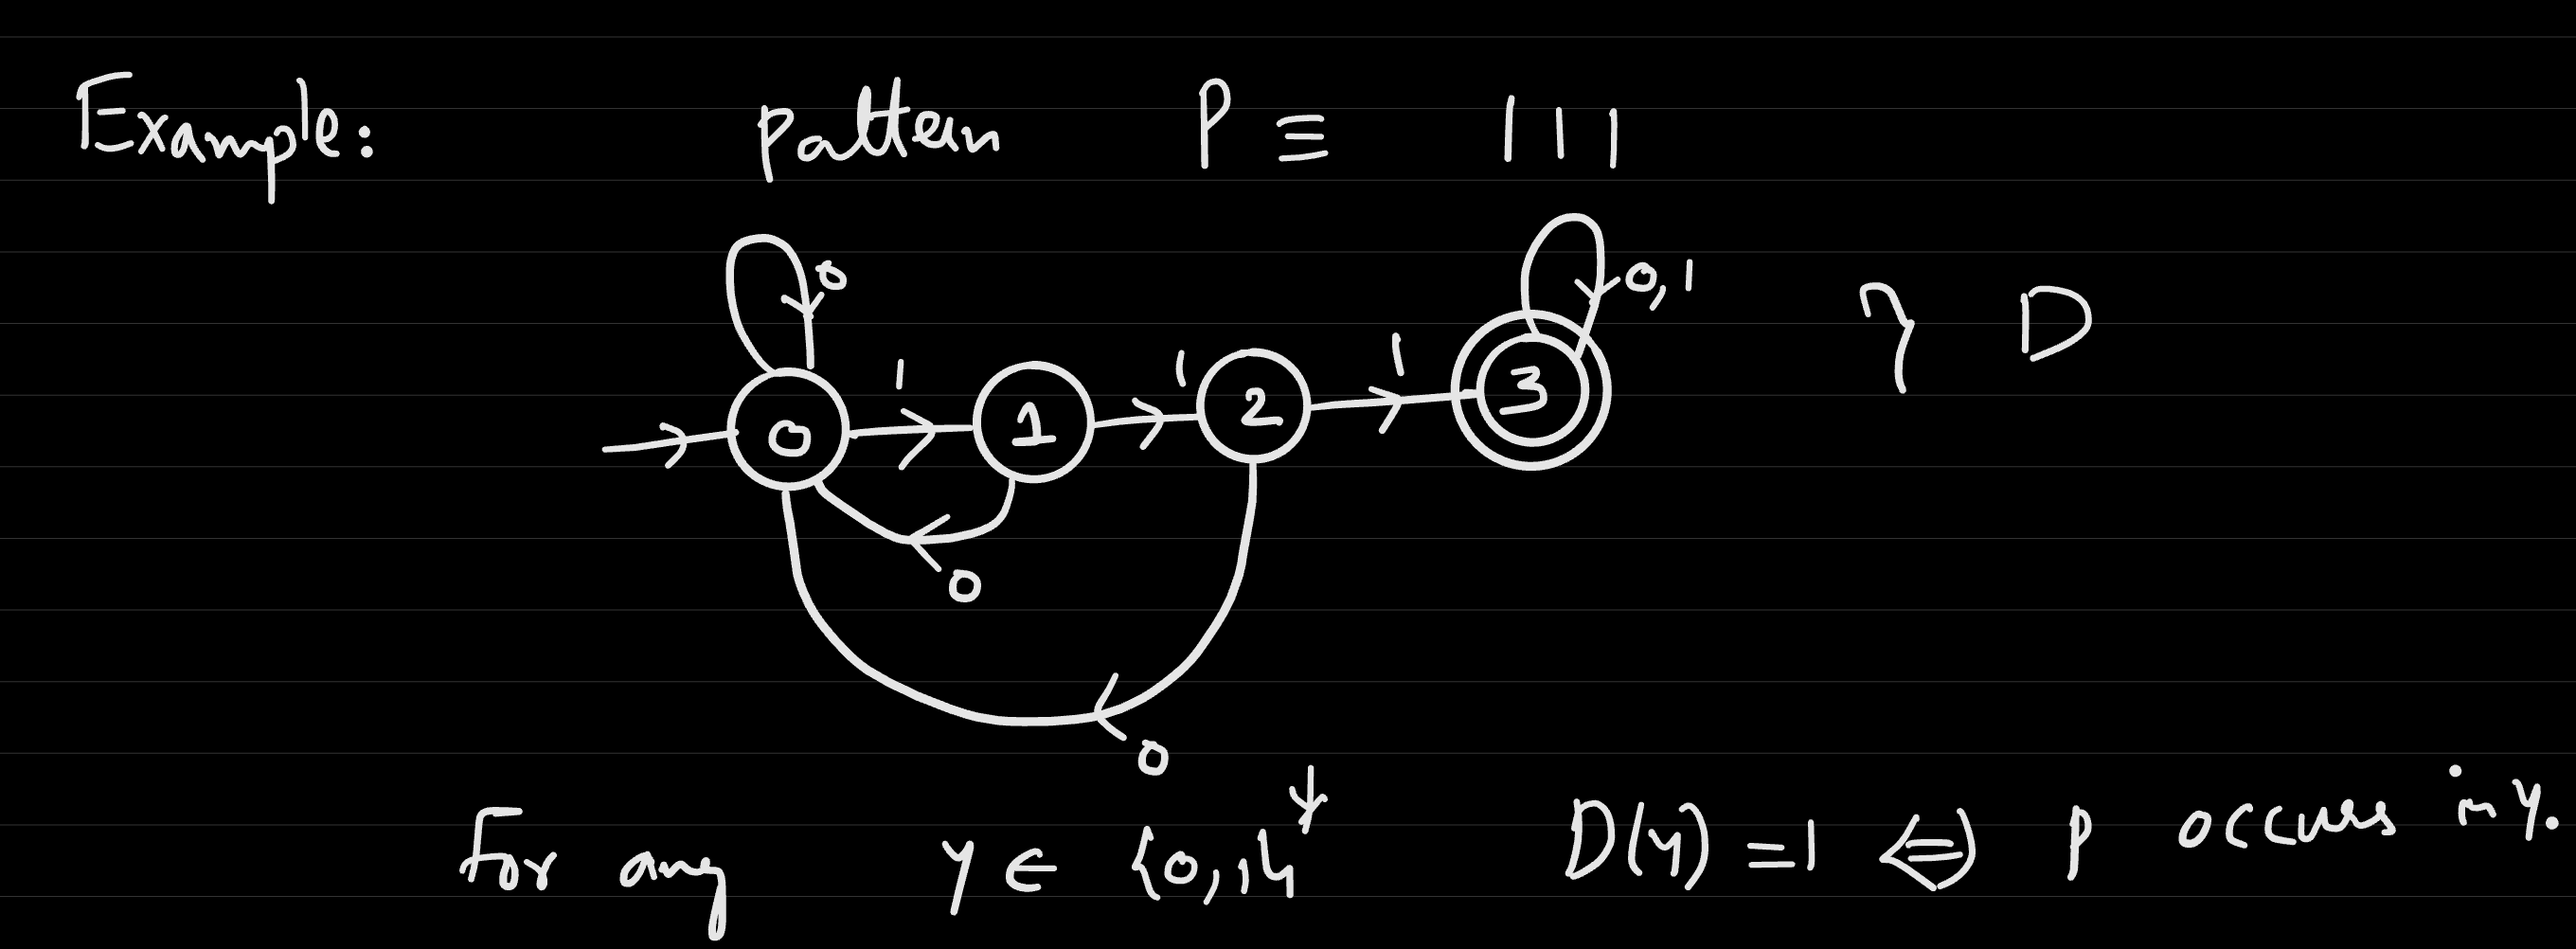 Example: pattern P ≡ 111
0 0,1
1 1 1 } D
0 1 2 3
0
0
For any y ∈ {0,1}* D(y) = 1 ⇔ P occurs in y.